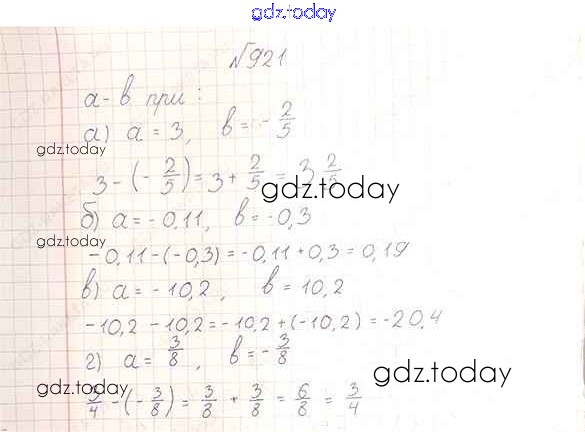 gdz.today
№921
a - b при:
а) a = 3, b = -2/5
gdz.today
3 - (-2/5) = 3 + 2/5 = 3 2/5
gdz.today
б) a = -0,11, b = -0,3
gdz.today
-0,11 - (-0,3) = -0,11 + 0,3 = 0,19
в) a = -10,2, b = 10,2
-10,2 - 10,2 = -10,2 + (-10,2) = -20,4
г) a = 3/8, b = -3/8
gdz.today
gdz.today
3/4 - (-3/8) = 3/8 + 3/8 = 6/8 = 3/4